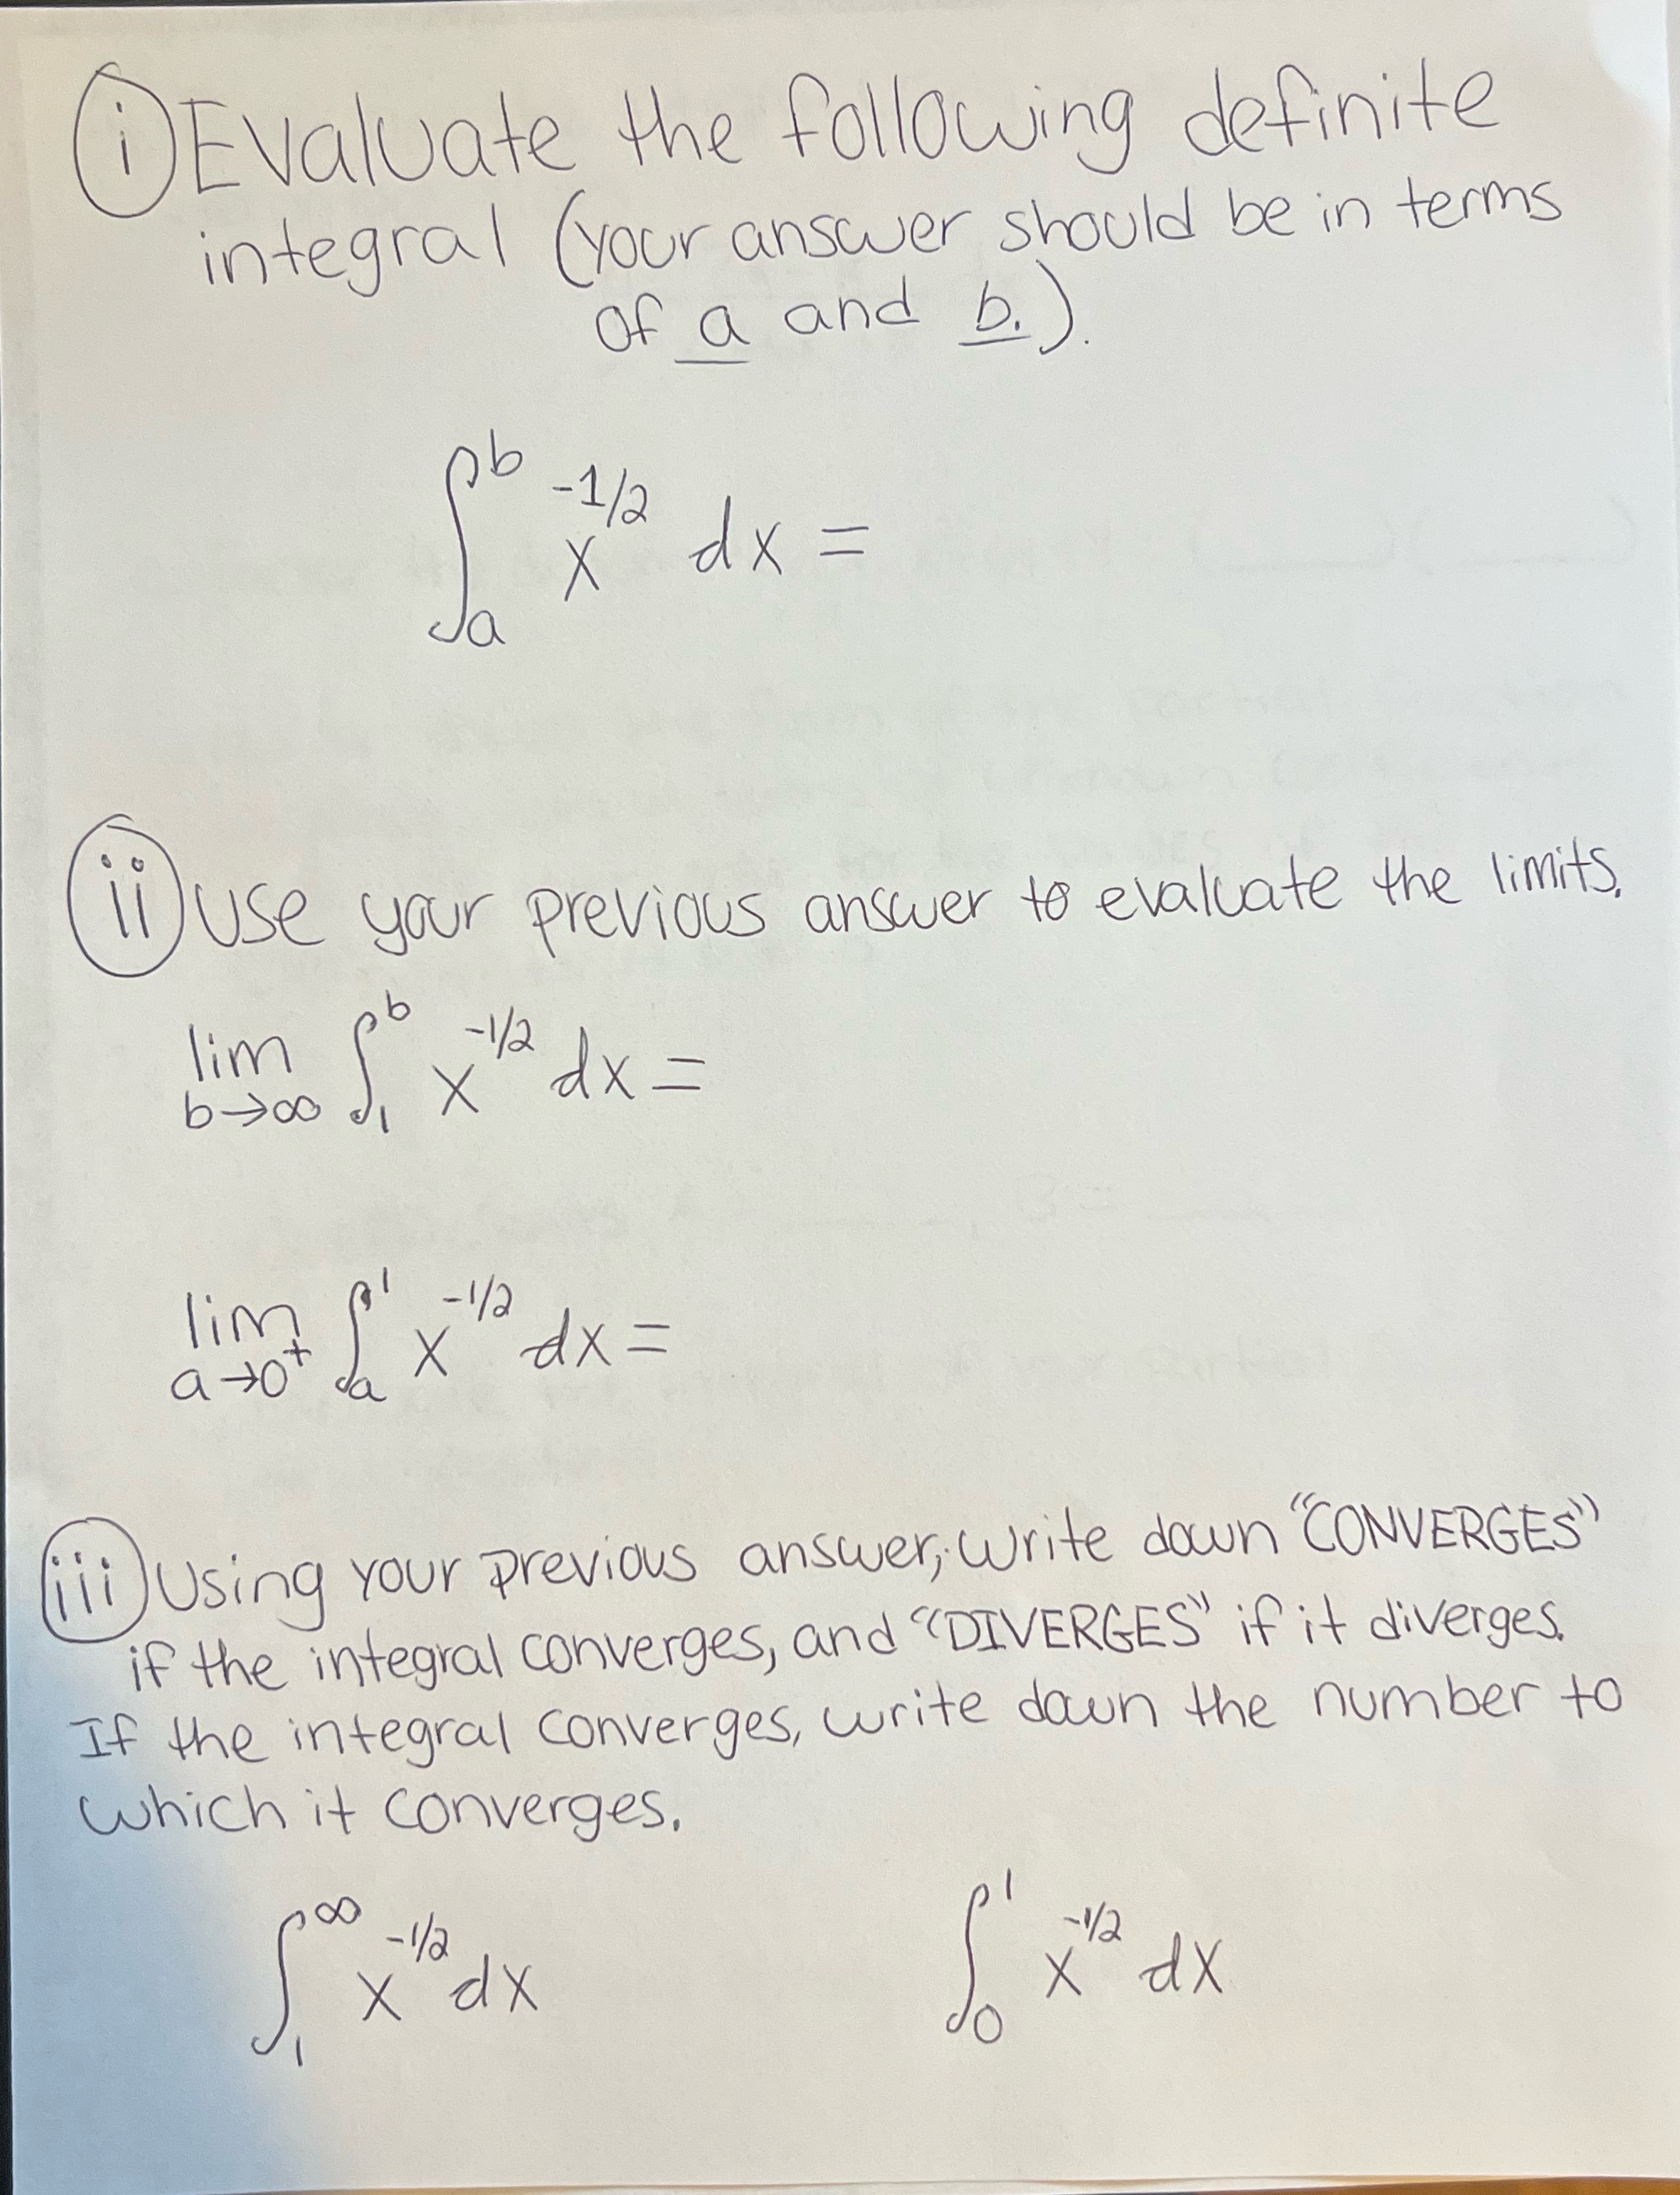 i) Evaluate the following definite
integral (your answer should be in terms
of a and b.).
∫_a^b x^{-1/2} dx =
ii) use your previous answer to evaluate the limits.
lim_{b→∞} ∫_1^b x^{-1/2} dx =
lim_{a→0^+} ∫_a^1 x^{-1/2} dx =
iii) Using your previous answer, write down "CONVERGES"
if the integral converges, and "DIVERGES" if it diverges.
If the integral converges, write down the number to
which it converges.
∫_1^∞ x^{-1/2} dx ∫_0^1 x^{-1/2} dx